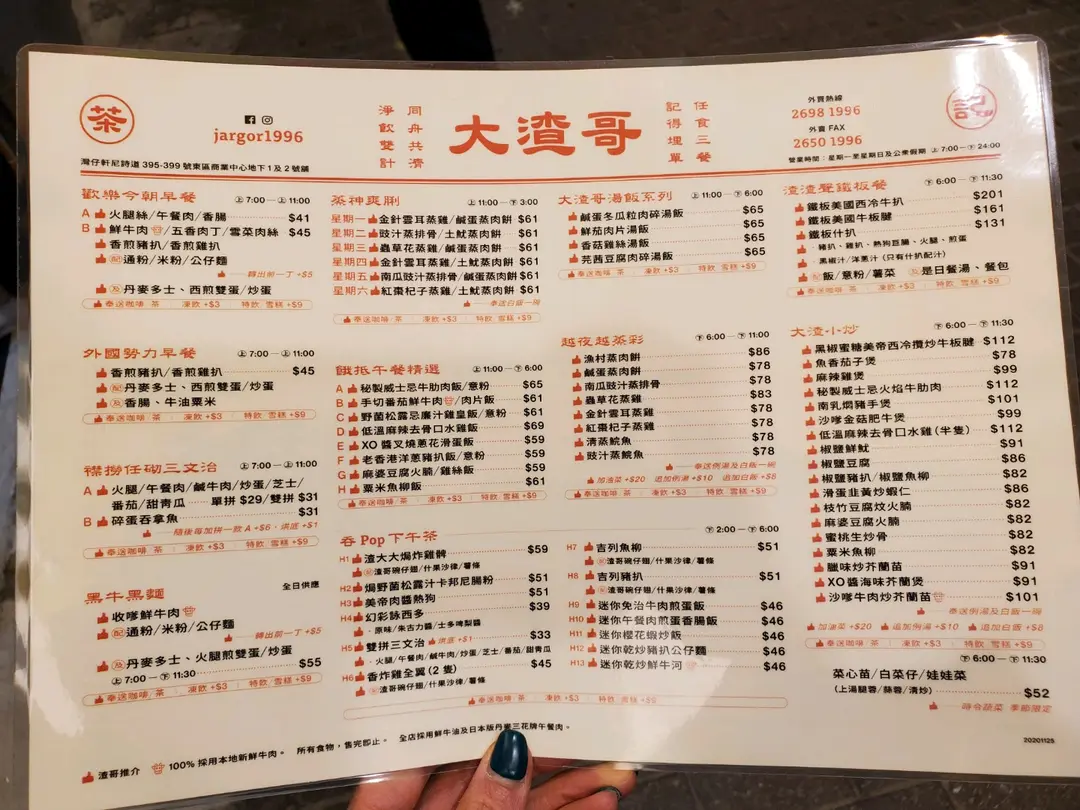 茶
jargor1996
灣仔軒尼詩道 395-399 號東區商業中心地下 1 及 2 號舖
淨飲雙計
同舟共濟
大渣哥
記得埋單
任食三餐
外賣熱線
2698 1996
外賣 FAX
2650 1996
營業時間：星期一至星期日及公眾假期 上 7:00 — 下 24:00
記
歡樂今朝早餐 上 7:00 — 上 11:00
A 火腿絲/午餐肉/香腸 $41
B 鮮牛肉/五香肉丁/雪菜肉絲 $45
香煎豬扒/香煎雞扒
配 通粉/米粉/公仔麵
轉出前一丁 +$5
及 丹麥多士、西煎雙蛋/炒蛋
奉送咖啡/茶 凍飲 +$3 特飲/雪糕 +$9
外國勢力早餐 上 7:00 — 上 11:00
香煎豬扒/香煎雞扒 $45
配 丹麥多士、西煎雙蛋/炒蛋
及 香腸、牛油粟米
奉送咖啡/茶 凍飲 +$3 特飲/雪糕 +$9
襟撈任砌三文治 上 7:00 — 上 11:00
A 火腿/午餐肉/鹹牛肉/炒蛋/芝士/
番茄/甜青瓜 單拼 $29/雙拼 $31
B 碎蛋吞拿魚 $31
隨後每加拼一款 A +$6、烘底 +$1
奉送咖啡/茶 凍飲 +$3 特飲/雪糕 +$9
黑牛黑麵 全日供應
收嗲鮮牛肉
配 通粉/米粉/公仔麵
轉出前一丁 +$5
及 丹麥多士、火腿煎雙蛋/炒蛋
上 7:00 — 下 11:30 $55
奉送咖啡/茶 凍飲 +$3 特飲/雪糕 +$9
茶神爽脷 上 11:00 — 下 3:00
星期一 金針雲耳蒸雞/鹹蛋蒸肉餅 $61
星期二 豉汁蒸排骨/土魷蒸肉餅 $61
星期三 蟲草花蒸雞/鹹蛋蒸肉餅 $61
星期四 金針雲耳蒸雞/土魷蒸肉餅 $61
星期五 南瓜豉汁蒸排骨/鹹蛋蒸肉餅 $61
星期六 紅棗杞子蒸雞/土魷蒸肉餅 $61
奉送白飯一碗
奉送咖啡/茶 凍飲 +$3 特飲/雪糕 +$9
餓抵午餐精選 上 11:00 — 下 6:00
A 秘製威士忌牛肋肉飯/意粉 $65
B 手切番茄鮮牛肉/肉片飯 $61
C 野菌松露忌廉汁雞皇飯/意粉 $61
D 低溫麻辣去骨口水雞飯 $69
E XO 醬叉燒蔥花滑蛋飯 $59
F 老香港洋蔥豬扒飯/意粉 $59
G 麻婆豆腐火腩/雞絲飯 $59
H 粟米魚柳飯 $61
奉送咖啡/茶 凍飲 +$3 特飲/雪糕 +$9
大渣哥湯飯系列 上 11:00 — 下 6:00
鹹蛋冬瓜粒肉碎湯飯 $65
鮮茄肉片湯飯 $65
香菇雞絲湯飯 $65
芫茜豆腐肉碎湯飯 $65
奉送咖啡/茶 凍飲 +$3 特飲/雪糕 +$9
越夜越蒸彩 下 6:00 — 下 11:00
漁村蒸肉餅 $86
鹹蛋蒸肉餅 $78
南瓜豉汁蒸排骨 $78
蟲草花蒸雞 $83
金針雲耳蒸雞 $78
紅棗杞子蒸雞 $78
清蒸鯇魚 $78
豉汁蒸鯇魚 $78
奉送例湯及白飯一碗
加油菜 +$20 追加例湯 +$10 追加白飯 +$8
奉送咖啡/茶 凍飲 +$3 特飲/雪糕 +$9
吞 Pop 下午茶 下 2:00 — 下 6:00
H1 渣大大焗炸雞髀 $59
配 渣哥碗仔翅/什果沙律/薯條
H2 焗野菌松露汁卡邦尼腸粉 $51
H3 美帝肉醬熱狗 $51
H4 幻彩詠西多 $39
・原味/朱古力醬/士多啤梨醬
H5 雙拼三文治 烘底 +$1 $33
・火腿/午餐肉/鹹牛肉/炒蛋/芝士/番茄/甜青瓜
H6 香炸雞全翼 (2 隻) $45
配 渣哥碗仔翅/什果沙律/薯條
H7 吉列魚柳 $51
配 渣哥碗仔翅/什果沙律/薯條
H8 吉列豬扒 $51
配 渣哥碗仔翅/什果沙律/薯條
H9 迷你免治牛肉煎蛋飯 $46
H10 迷你午餐肉煎蛋香腸飯 $46
H11 迷你櫻花蝦炒飯 $46
H12 迷你乾炒豬扒公仔麵 $46
H13 迷你乾炒鮮牛河 $46
奉送咖啡/茶 凍飲 +$3 特飲/雪糕 +$9
渣渣聲鐵板餐 下 6:00 — 下 11:30
鐵板美國西冷牛扒 $201
鐵板美國牛板腱 $161
鐵板什扒 $131
・豬扒、雞扒、熱狗豆腸、火腿、煎蛋
・黑椒汁/洋蔥汁 (只有什扒配汁)
配 飯/意粉/薯菜 及 是日餐湯、餐包
奉送咖啡/茶 凍飲 +$3 特飲/雪糕 +$9
大渣小炒 下 6:00 — 下 11:30
黑椒蜜糖美帝西冷攬炒牛板腱 $112
魚香茄子煲 $78
麻辣雞煲 $99
秘製威士忌火焰牛肋肉 $112
南乳燜豬手煲 $101
沙嗲金菇肥牛煲 $99
低溫麻辣去骨口水雞 (半隻) $112
椒鹽鮮魷 $91
椒鹽豆腐 $86
椒鹽豬扒/椒鹽魚柳 $82
滑蛋韭黃炒蝦仁 $86
枝竹豆腐炆火腩 $82
麻婆豆腐火腩 $82
蜜桃生炒骨 $82
粟米魚柳 $82
臘味炒芥蘭苗 $91
XO 醬海味芥蘭煲 $91
沙嗲牛肉炒芥蘭苗 $101
奉送例湯及白飯一碗
加油菜 +$20 追加例湯 +$10 追加白飯 +$8
奉送咖啡/茶 凍飲 +$3 特飲/雪糕 +$9
下 6:00 — 下 11:30
菜心苗/白菜仔/娃娃菜
(上湯腿蓉/蒜蓉/清炒) $52
時令蔬菜 季節限定
渣哥推介 100% 採用本地新鮮牛肉。 所有食物，售完即止。 全店採用鮮牛油及日本版丹麥三花牌午餐肉。
20201128